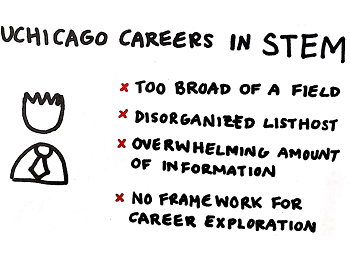 UCHICAGO CAREERS IN STEM
x TOO BROAD OF A FIELD
x DISORGANIZED LISTHOST
x OVERWHELMING AMOUNT
OF INFORMATION
x NO FRAMEWORK FOR
CAREER EXPLORATION